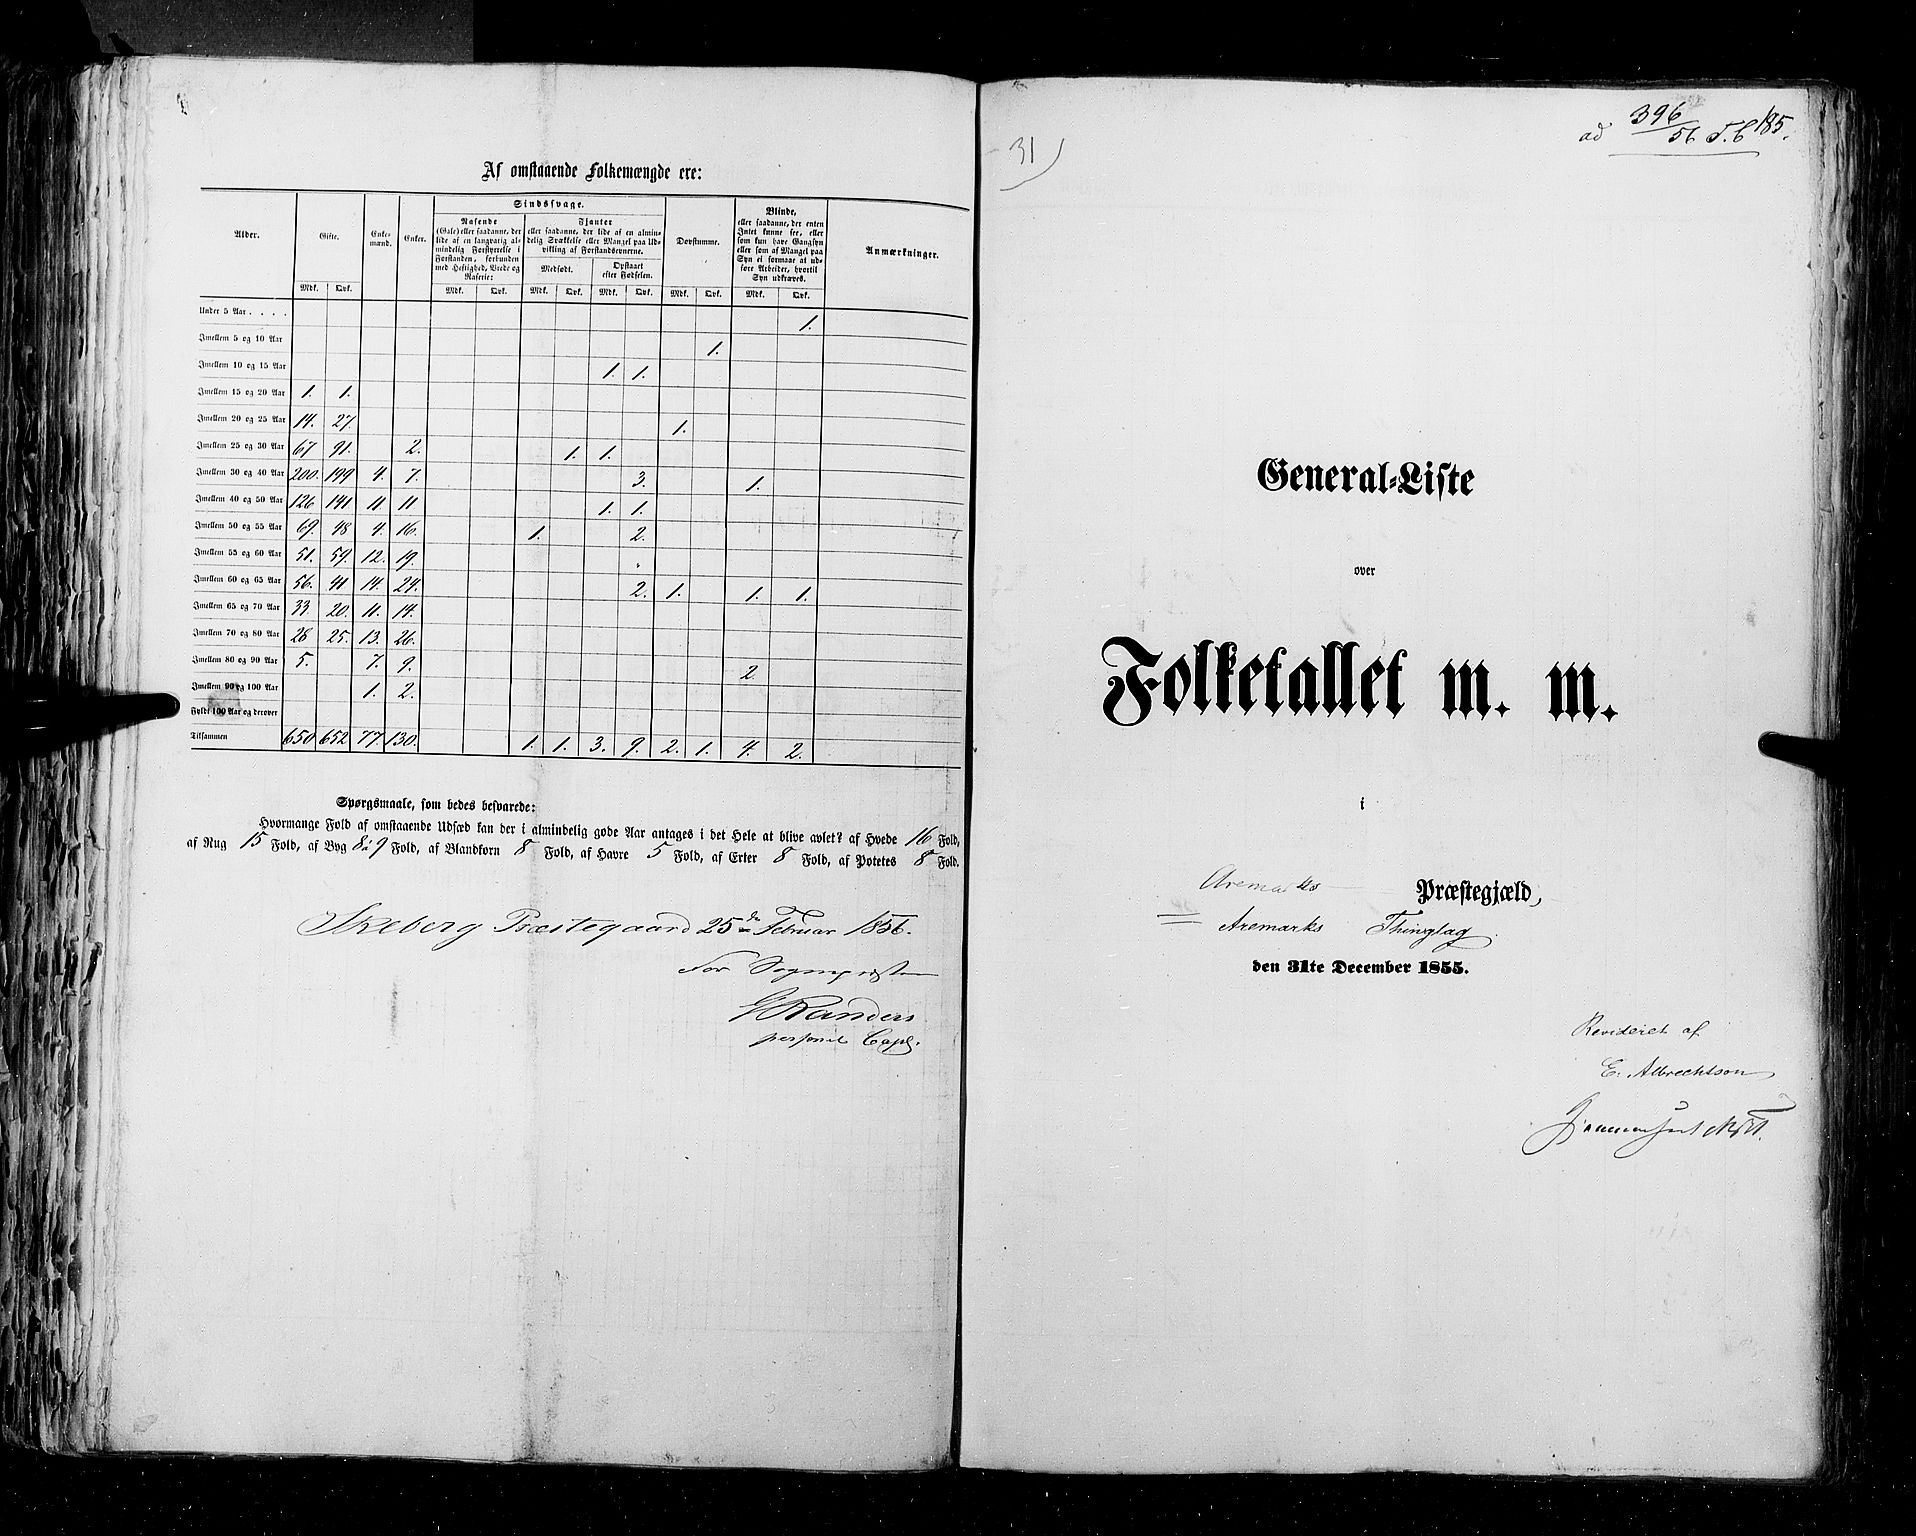 Af omstaaende Folkemængde ere:
Alder. Gifte. Enkemænd. Enker. Sindssvage. Døvstumme. Blinde, eller saadanne, der enten Intet kunne see, eller som kun have Gangsyn eller som af Mangel paa Syn ei formaae at udføre Arbeider, hvortil Syn udkræves. Anmærkninger.
Rasende (Gale) eller saadanne, der lide af en langvarig almindelig Forstyrrelse i Forstanden, forbunden med Heftighed, Vrede og Raserie:
Fjanter eller saadanne, der lide af en almindelig Svækkelse eller Mangel paa Udvikling af Forstandsevnerne.
Medfødt. Opstaaet efter Fødselen.
Mdk. Qvk. Mdk. Qvk. Mdk. Qvk. Mdk. Qvk. Mdk. Qvk. Mdk. Qvk.
Under 5 Aar . . . . 1.
Imellem 5 og 10 Aar 1.
Imellem 10 og 15 Aar 1. 1.
Imellem 15 og 20 Aar 1. 1.
Imellem 20 og 25 Aar 14. 27. 1.
Imellem 25 og 30 Aar 67 91. 2. 1. 1.
Imellem 30 og 40 Aar 200. 199 4. 7. 3. 1.
Imellem 40 og 50 Aar 126 141 11 11 1. 1.
Imellem 50 og 55 Aar 69. 48 4. 16. 1. 2.
Imellem 55 og 60 Aar 51. 59. 12. 19.
Imellem 60 og 65 Aar 56. 41 14. 24. 2. 1. 1. 1.
Imellem 65 og 70 Aar 33 20. 11. 14.
Imellem 70 og 80 Aar 28 25. 13. 26.
Imellem 80 og 90 Aar 5. 7. 9. 2
Imellem 90 og 100 Aar 1. 2.
Fyldt 100 Aar og derover
Tilsammen 650 652 77. 130. 1. 1. 3. 9. 2. 1. 4. 2.
Spørgsmaale, som bedes besvarede:
Hvormange Fold af omstaaende Udsæd kan der i almindelig gode Aar antages i det Hele at blive avlet? af Hvede 16 Fold,
af Rug 15 Fold, af Byg 8 à 9 Fold, af Blandkorn 8 Fold, af Havre 5 Fold, af Erter 8 Fold, af Potetes 8 Fold.
Skeberg Præstegaard 25de Februar 1856.
For Sognepræsten
G Randers
personel Capl.
31)
ad 396/56 T. C 185.
General-Liste
over
Folketallet m. m.
i
Aremarks Præstegjæld,
= Aremarks Thinglag
den 31te December 1855.
Revideret af
E. Albrechtson